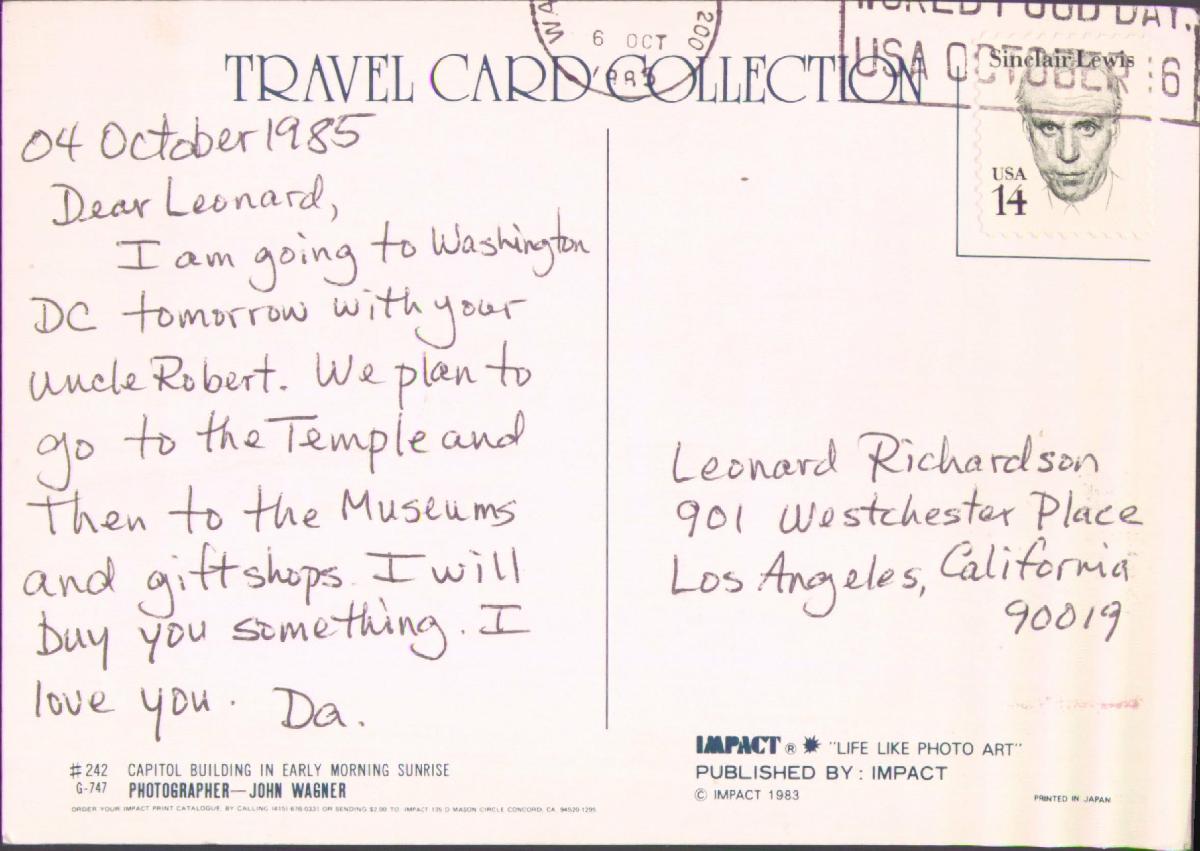 WORLD FOOD DAY.
USA OCTOBER 16
6 OCT
1985
200
TRAVEL CARD COLLECTION
Sinclair Lewis
USA
14
04 October 1985
Dear Leonard,
I am going to Washington
DC tomorrow with your
uncle Robert. We plan to
go to the Temple and
Then to the Museums
and giftshops. I will
buy you something. I
love you. Da.
Leonard Richardson
901 Westchester Place
Los Angeles, California
90019
#242 CAPITOL BUILDING IN EARLY MORNING SUNRISE
G-747 PHOTOGRAPHER—JOHN WAGNER
ORDER YOUR IMPACT PRINT CATALOGUE, BY CALLING (415) 676-0331 OR SENDING $2.00 TO: IMPACT 135 D MASON CIRCLE CONCORD, CA. 94520-1295
IMPACT ® "LIFE LIKE PHOTO ART"
PUBLISHED BY: IMPACT
© IMPACT 1983
PRINTED IN JAPAN